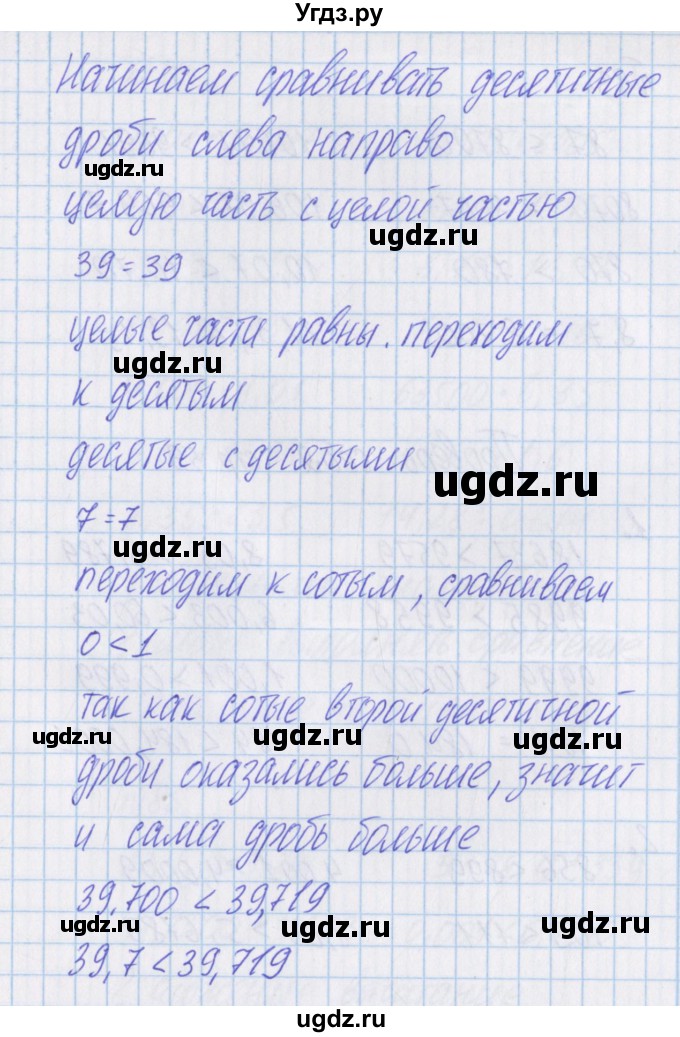 Угдз.ру
Начинаем сравнивать десятичные
дроби слева направо
ugdz.ru
целую часть с целой частью
ugdz.ru
39 = 39
целые части равны. переходим
ugdz.ru
к десятым
десятые с десятыми
ugdz.ru
7 = 7
ugdz.ru
переходим к сотым, сравниваем
0 < 1
так как сотые второй десятичной
ugdz.ru ugdz.ru ugdz.ru
дроби оказались больше, значит
и сама дробь больше
39,700 < 39,719
ugdz.ru ugdz.ru ugdz.ru
39,7 < 39,719
ugdz.ru